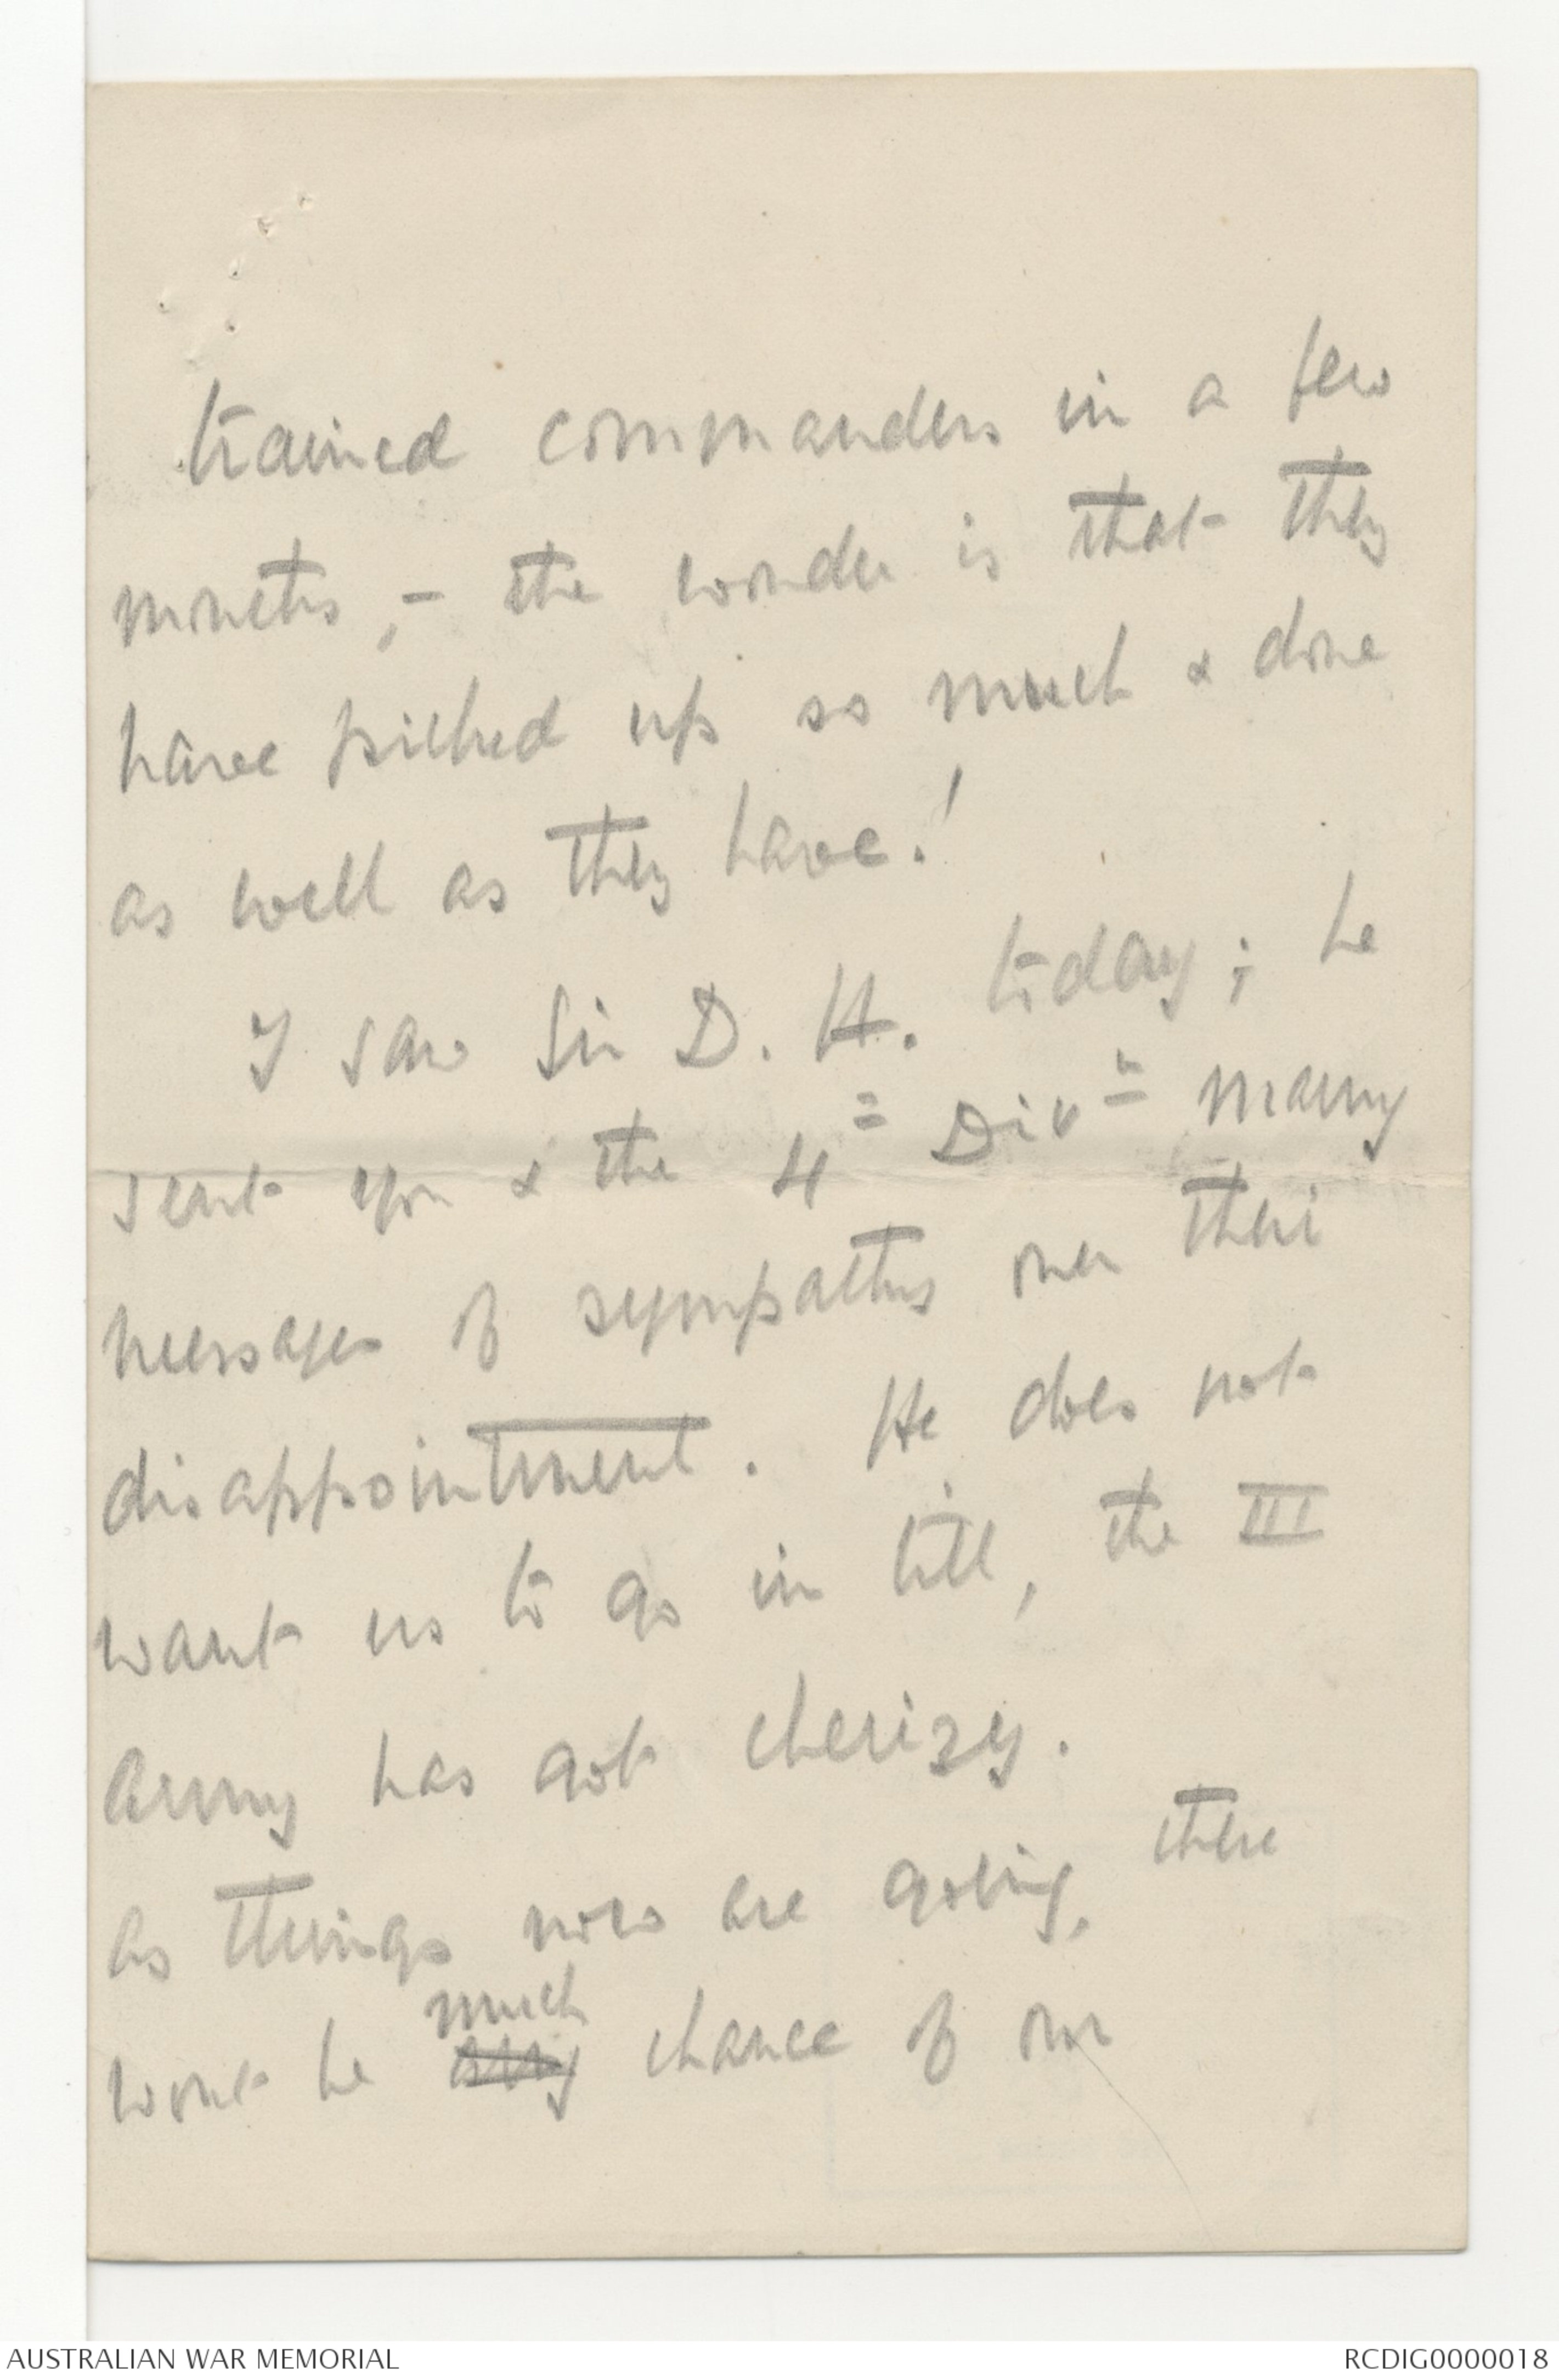 trained commanders in a few
months, - the wonder is that they
have picked up so much & done
as well as they have!
I saw Sir D. H. today; he
sent you & the 4= Divn= many
messages of sympathy over their
disappointment. He does not
want us to go in till, the III
Army has got Cherizy.
As things now are going, there
wont be much any chance of our
AUSTRALIAN WAR MEMORIAL
RCDIG0000018